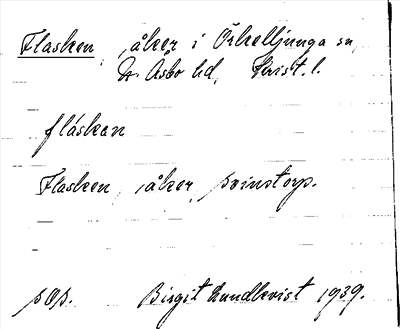 Flasken, åker i Örkelljunga sn,
N. Åsbo hd, Krist. l.
flåskan
Flasken, åker, Svinstorp.
Birgit Lundkvist 1939.